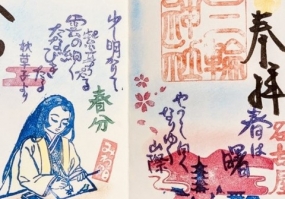 奉拝
名古屋
三輪神社
春は曙
やうやう白く
なりゆく
山際
春分
少し明かりて
紫だちたる
雲の細く
たなびき
たる
枕草子より